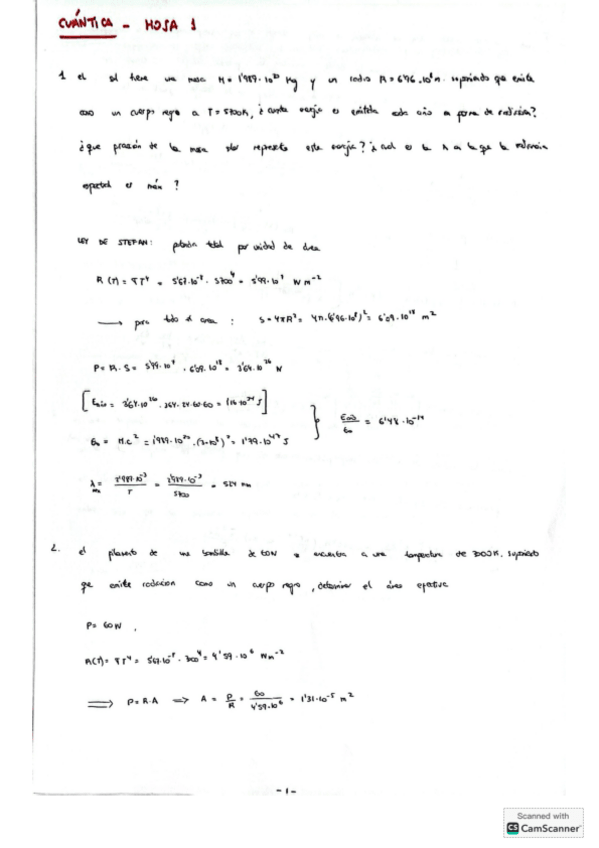 CUÁNTICA - HOJA 1
1 el sol tiene una masa M = 1'989·10³⁰ Kg y un radio R = 6'96·10⁸ m. suponiendo que emite
como un cuerpo negro a T = 5700K, ¿cuánta energía es emitida cada año en forma de radiación?
¿que fracción de la masa solar representa esta energía? ¿cual es la λ a la que la radiancia
espectral es máx ?
LEY DE STEFAN: potencia total por unidad de área
R(T) = σT⁴ = 5'67·10⁻⁸ · 5700⁴ = 5'99·10⁷ W m⁻²
⟶ para todo el area : S = 4πR² = 4π·(6'96·10⁸)² = 6'09·10¹⁸ m²
P = R·S = 5'99·10⁷ · 6'09·10¹⁸ = 3'64·10²⁶ W
3'64·10²⁶ · 364·24·60·60 =
E₀ = M·c² = 1'989·10³⁰ · (3·10⁸)² = 1'79·10⁴⁷ J
= 6'48·10⁻¹⁴
λ = = = 524 nm
T 5700
2. el filamento de una bombilla de 60W se encuentra a una temperatura de 3000K. suponiendo
que emite radiacion como un cuerpo negro, determinar el área efectiva
P = 60W .
R(T) = σT⁴ = 5'67·10⁻⁸ · 300⁴ = 4'59·10⁶ W m⁻²
⟹ P = R·A ⟹ A = P/R = 60/4'59·10⁶ = 1'31·10⁻⁵ m²
- 1 -
Scanned with
CS CamScanner